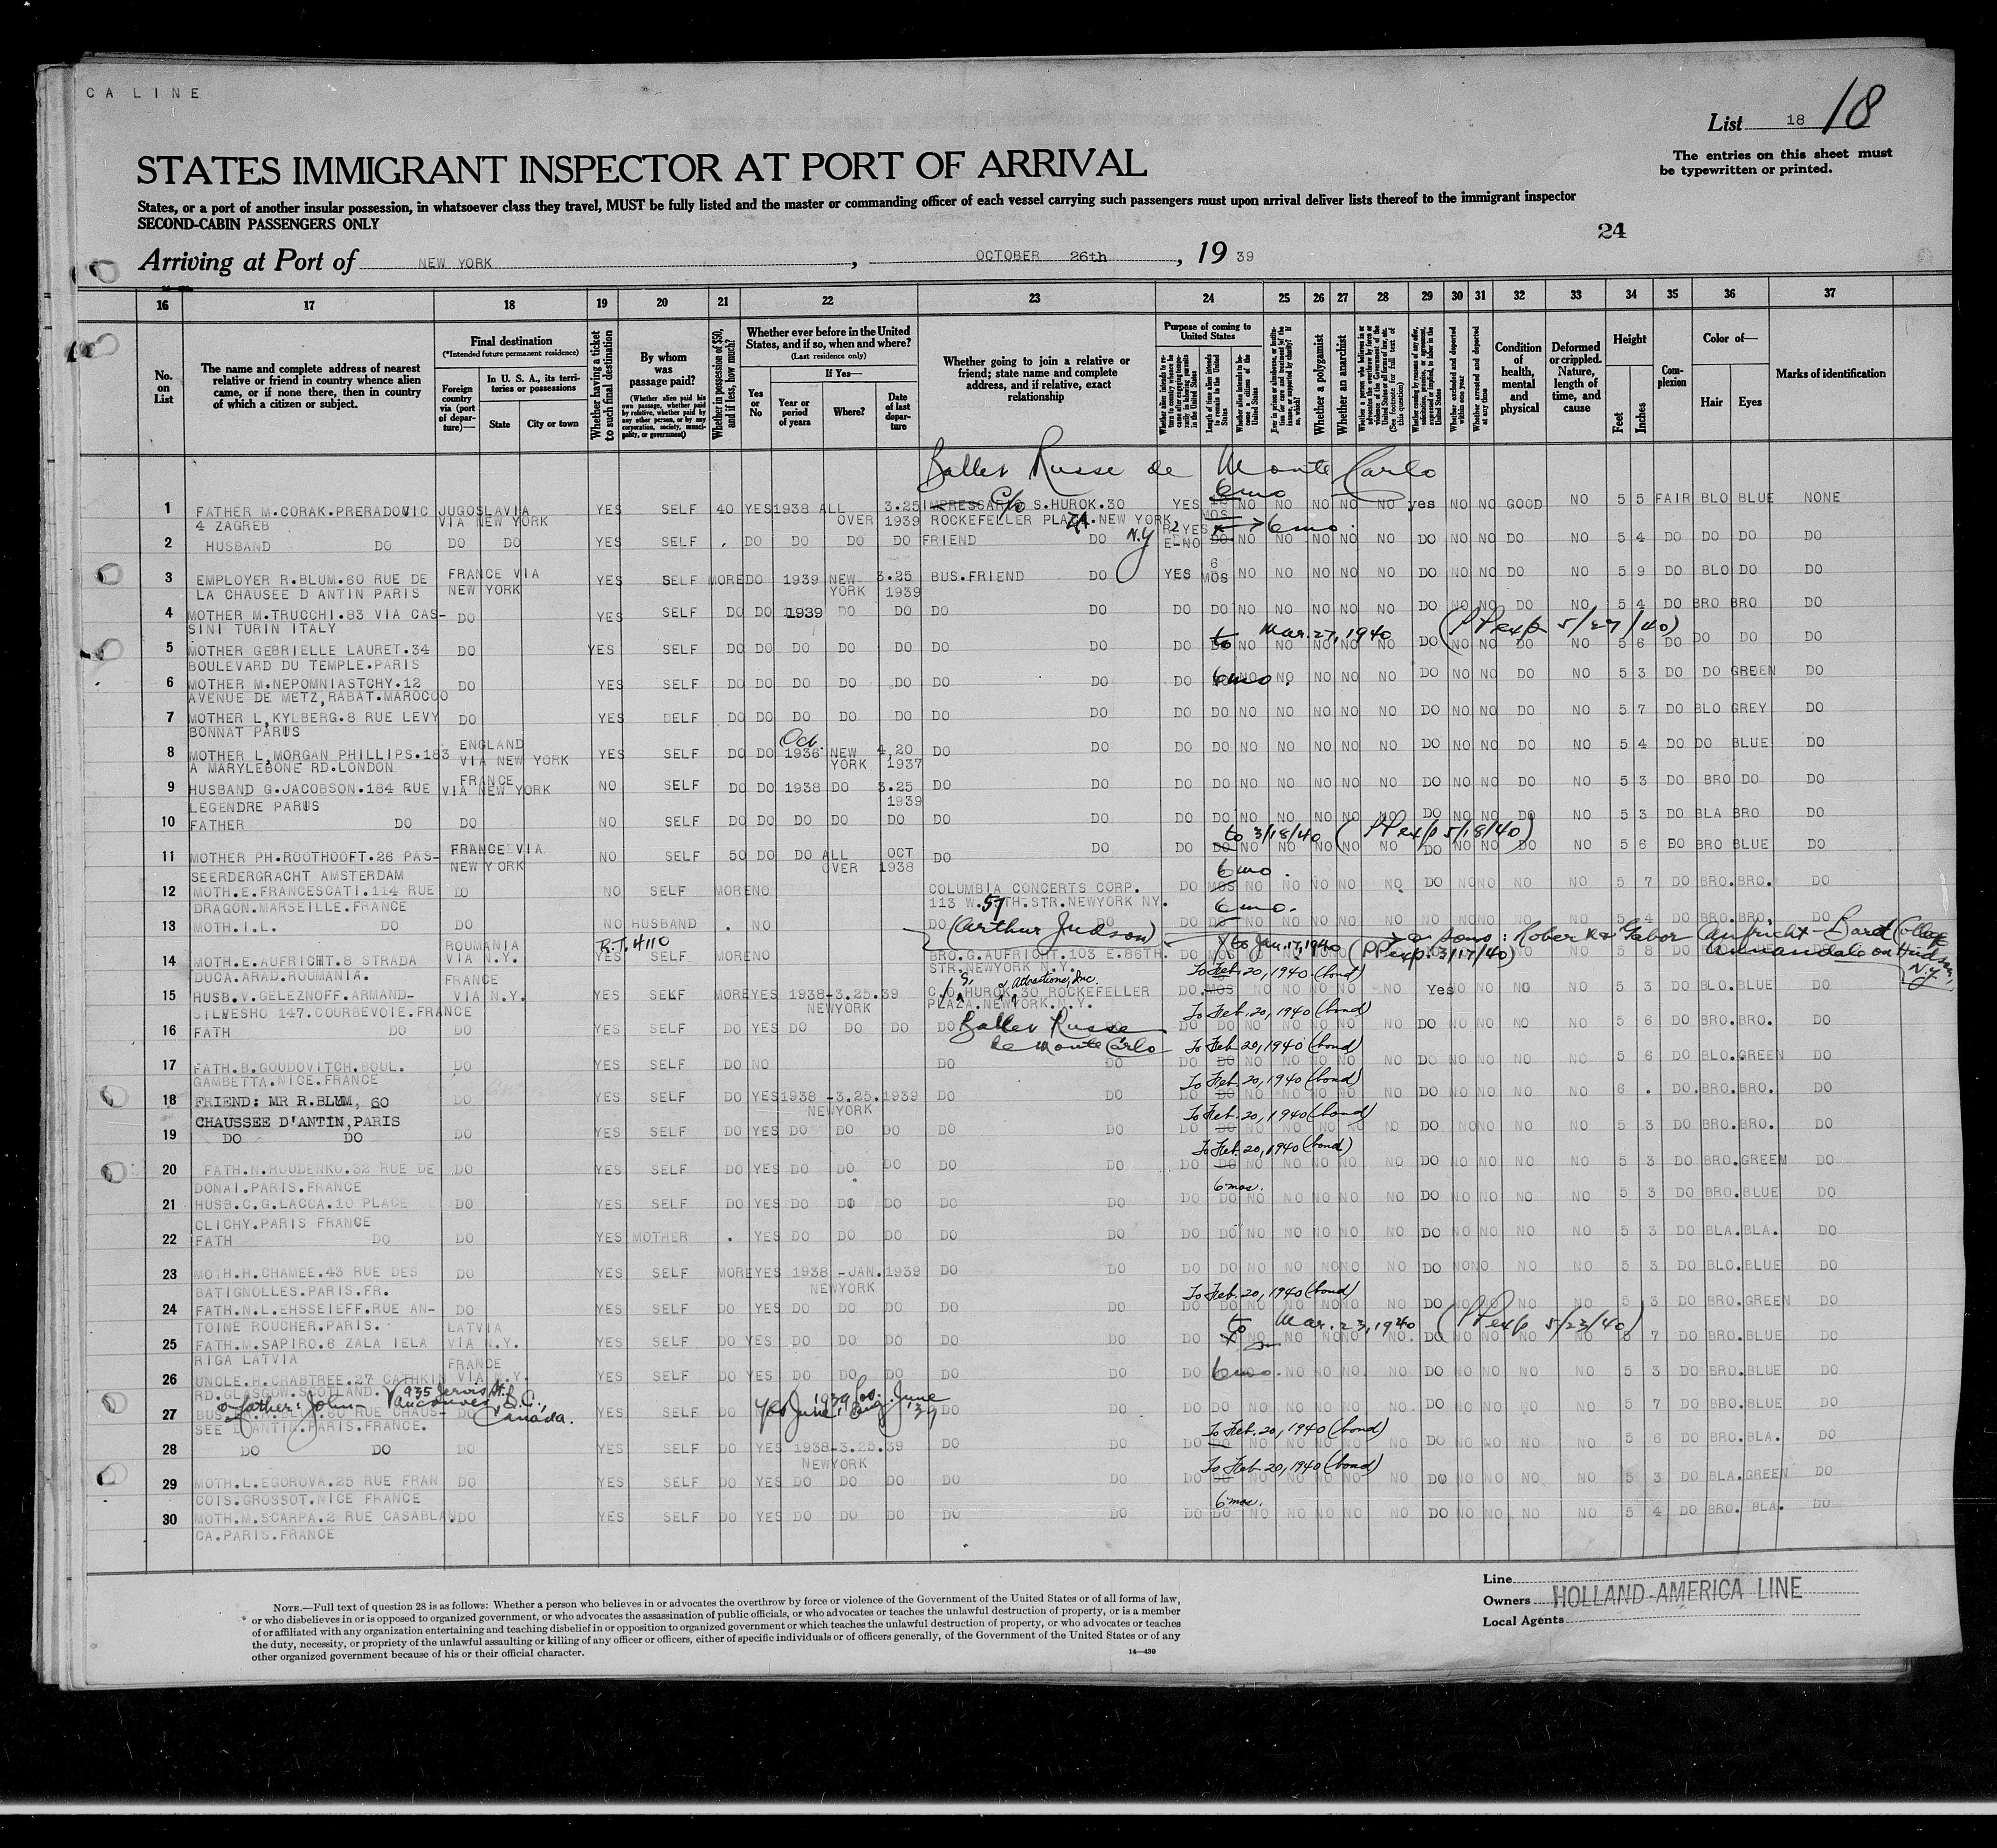 CA LINE
List 18 18
STATES IMMIGRANT INSPECTOR AT PORT OF ARRIVAL
The entries on this sheet must
be typewritten or printed.
States, or a port of another insular possession, in whatsoever class they travel, MUST be fully listed and the master or commanding officer of each vessel carrying such passengers must upon arrival deliver lists thereof to the immigrant inspector
SECOND-CABIN PASSENGERS ONLY
24
Arriving at Port of NEW YORK , OCTOBER 26th , 19 39
16 17 18 19 20 21 22 23 24 25 26 27 28 29 30 31 32 33 34 35 36 37
No. on List
The name and complete address of nearest relative or friend in country whence alien came, or if none there, then in country of which a citizen or subject.
Final destination
(*Intended future permanent residence)
Foreign country via (port of departure)—
In U. S. A., its territories or possessions
State
City or town
Whether having a ticket to such final destination
By whom was passage paid?
(Whether alien paid his own passage, whether paid by relative, whether paid by any other person, or by any corporation, society, municipality, or government)
Whether in possession of $50, and if less, how much?
Whether ever before in the United States, and if so, when and where?
(Last residence only)
Yes or No
If Yes—
Year or period of years
Where?
Date of last departure
Whether going to join a relative or friend; state name and complete address, and if relative, exact relationship
Purpose of coming to United States
Whether a polygamist
Whether an anarchist
Whether excluded and deported within one year
Whether arrested and deported at any time
Condition of health, mental and physical
Deformed or crippled. Nature, length of time, and cause
Height
Feet
Inches
Complexion
Color of—
Hair
Eyes
Marks of identification
Ballet Russe de Monte Carlo
6 mo
1 FATHER M.CORAK.PRERADOVIC JUGOSLAVIA YES SELF 40 YES 1938 ALL 3.25 IMPRESSARIO C/o S.HUROK.30 YES NO NO NO NO NO yes NO NO GOOD NO 5 5 FAIR BLO BLUE NONE
4 ZAGREB VIA NEW YORK OVER 1939 ROCKEFELLER PLAZA.NEW YORK, MOS
N.Y
2 HUSBAND DO DO DO YES SELF . DO DO DO DO FRIEND DO YES E-NO 6 mo. NO NO NO NO NO DO NO NO DO NO 5 4 DO DO DO DO
3 EMPLOYER R.BLUM.60 RUE DE FRANCE VIA YES SELF MORE DO 1939 NEW 3.25 BUS.FRIEND DO YES 6 MOS NO NO NO NO NO DO NO NO DO NO 5 9 DO BLO DO DO
LA CHAUSEE D ANTIN PARIS NEW YORK YORK 1939
4 MOTHER M.TRUCCHI.83 VIA CAS- DO YES SELF DO DO 1939 DO DO DO DO DO DO NO NO NO NO NO DO NO NO DO NO 5 4 DO BRO BRO DO
SINI TURIN ITALY
to Mar.27,1940 (PP exp 5/27/40)
5 MOTHER GEBRIELLE LAURET.34 DO YES SELF DO DO DO DO DO DO DO DO NO NO NO NO NO DO NO NO DO NO 5 6 DO DO DO DO
BOULEVARD DU TEMPLE.PARIS
6 MOTHER M.NEPOMNIASTCHY.12 DO YES SELF DO DO DO DO DO DO DO DO 6 mo. NO NO NO NO DO NO NO DO NO 5 3 DO DO GREEN DO
AVENUE DE METZ,RABAT.MAROCCO
7 MOTHER L,KYLBERG.8 RUE LEVY DO YES DELF DO DO DO DO DO DO DO DO DO NO NO NO NO NO DO NO NO DO NO 5 7 DO BLO GREY DO
BONNAT PARUS
Oct.
8 MOTHER L,MORGAN PHILLIPS.183 ENGLAND YES SELF DO DO 1936 NEW 4.20 DO DO DO DO NO NO NO NO NO DO NO NO DO NO 5 4 DO DO BLUE DO
A MARYLEBONE RD.LONDON VIA NEW YORK YORK 1937
9 HUSBAND G.JACOBSON.184 RUE FRANCE VIA NEW YORK NO SELF DO DO 1938 DO 3.25 DO DO DO DO NO NO NO NO NO DO NO NO DO NO 5 3 DO BRO DO DO
LEGENDRE PARUS 1939
10 FATHER DO DO NO SELF DO DO DO DO DO DO DO DO DO NO NO NO NO NO DO NO NO DO NO 5 3 DO BLA BRO DO
to 3/18/40 (PP exp 5/18/40)
11 MOTHER PH.ROOTHOOFT.26 PAS- FRANCE VIA NO SELF 50 DO DO ALL OCT DO DO DO DO NO NO NO NO NO DO NO NO DO NO 5 6 DO BRO BLUE DO
SEERDERGRACHT AMSTERDAM NEW YORK OVER 1938
6 mo.
12 MOTH.E.FRANCESCATI.114 RUE DO NO SELF MORE NO COLUMBIA CONCERTS CORP. DO MOS NO NO NO NO NO DO NO NO NO NO 5 7 DO BRO.BRO. DO
DRAGON.MARSEILLE.FRANCE 113 W.57TH.STR.NEWYORK NY.
6 mo.
13 MOTH.I.L. DO DO NO HUSBAND . NO DO DO DO DO NO NO NO NO NO NO NO NO NO NO 5 4 DO BRO.BRO. DO
(Arthur Judson)
or sons: Robert & Gabor Aufricht - Bard College
Annandale on Hudson, N.Y.
R.T. 4110
to Jan.17,1940 (PP exp. 3/17/40)
14 MOTH.E.AUFRICHT.8 STRADA ROUMANIA VIA N.Y. YES SELF MORE NO BRO.G.AUFRICHT.103 E.86TH. DO 5 8 DO
DUCA.ARAD.ROUMANIA. STR.NEWYORK N.Y.
To Feb.20,1940 (bond)
15 HUSB.V.GELEZNOFF.ARMAND- FRANCE VIA N.Y. YES SELF MORE YES 1938-3.25.39 C/O S. HUROK Attractions, Inc. 30 ROCKEFELLER DO.MOS NO NO NO NO NO Yes NO NO NO NO 5 3 DO BLO.BLUE DO
SILVESHO 147.COURBEVOIE.FRANCE NEWYORK PLAZA.NEWYORK.N.Y.
To Feb.20,1940 (bond)
16 FATH DO DO YES SELF DO YES DO DO DO DO DO DO DO NO NO NO NO NO DO NO NO NO NO 5 6 DO BRO.BRO. DO
Ballet Russe
de Monte Carlo
To Feb 20,1940 (bond)
17 FATH.B.GOUDOVITCH.BOUL. DO YES SELF DO NO DO DO DO DO NO NO NO NO NO DO NO NO NO NO 5 6 DO BLO.GREEN DO
GAMBETTA.NICE.FRANCE
To Feb.20,1940 (bond)
18 FRIEND: MR R.BLUM, 60 DO YES SELF DO YES 1938 -3.25.1939 DO DO DO DO NO NO NO NO NO DO NO NO NO NO 6 . DO.BRO.BRO. DO
CHAUSSEE D'ANTIN,PARIS NEWYORK
To Feb.20,1940 (bond)
19 DO DO DO YES SELF DO YES DO DO DO DO DO DO DO NO NO NO NO NO DO NO NO NO NO 5 3 DO BRO.BRO. DO
To Feb.20,1940 (bond)
20 FATH.N.ROUDENKO.32 RUE DE DO YES SELF DO YES DO DO DO DO DO DO DO NO NO NO NO NO DO NO NO NO NO 5 3 DO BRO.GREEM DO
DONAI.PARIS.FRANCE
6 mos.
21 HUSB.C.G.LACCA.10 PLACE DO YES SELF DO YES DO DO DO DO DO DO DO NO NO NO NO NO DO NO NO NO NO 5 3 DO BRO.BLUE DO
CLICHY.PARIS FRANCE
22 FATH DO DO YES MOTHER . YES DO DO DO DO DO DO DO NO NO NO NO NO DO NO NO NO NO 5 3 DO BLA.BLA. DO
23 MOTH.H.CHAMEE.43 RUE DES DO YES SELF MORE YES 1938 -JAN.1939 DO DO DO DO NO NO NO NO NO DO NO NO. NO NO 5 3 DO BLO.BLUE DO
BATIGNOLLES.PARIS.FR. NEWYORK
To Feb.20,1940 (bond)
24 FATH.N.L.EHSSEIEFF.RUE AN- DO YES SELF DO YES DO DO DO DO DO DO DO NO NO NO NO NO DO NO NO NO NO 5 3 DO BRO.GREEN DO
TOINE ROUCHER.PARIS.
to Mar.23,1940 (PP exp 5/23/40)
25 FATH.M.SAPIRO.6 ZALA IELA LATVIA VIA N.Y. YES SELF DO YES DO DO DO DO DO DO NO NO NO NO NO. DO NO NO NO NO 5 7 DO BRO.BLUE DO
RIGA LATVIA
26 UNCLE.H.CRABTREE.27 CATHKIN FRANCE VIA N.Y. YES SELF DO YES DO DO DO DO DO DO 6 mo. NO NO NO NO DO NO NO NO NO 5 3 DO BRO.BLUE DO
RD.GLASGOW.SCOTLAND.
or father: John - 935 Jervis St. Vancouver, B.C., Canada.
27 60 RUE CHAUS- DO YES SELF DO Yes June 1939 Los. Aug. June '39 DO DO DO DO NO NO NO NO NO. DO NO NO NO NO 5 7 DO BRO.BLUE DO
SEE D ANTIN.PARIS.FRANCE.
To Feb.20,1940 (bond)
28 DO DO DO YES SELF DO YES 1938-3.25.39 DO DO DO DO NO NO NO NO NO DO NO NO NO NO 5 6 DO BRO.BLA. DO
NEWYORK
To Feb 20,1940 (bond)
29 MOTH.L.EGOROVA.25 RUE FRAN DO YES SELF DO YES DO DO DO DO DO DO DO NO NO NO NO NO DO NO NO NO NO 5 3 DO BLA.GREEN DO
COIS.GROSSOT.NICE FRANCE
6 mos.
30 MOTH.M.SCARPA.2 RUE CASABLAN DO YES SELF DO YES DO DO DO DO DO DO DO NO NO NO NO NO DO NO NO NO NO 5 4 DO BRO. BLA. DO
CA.PARIS.FRANCE
NOTE.—Full text of question 28 is as follows: Whether a person who believes in or advocates the overthrow by force or violence of the Government of the United States or of all forms of law,
or who disbelieves in or is opposed to organized government, or who advocates the assassination of public officials, or who advocates or teaches the unlawful destruction of property, or is a member
of or affiliated with any organization entertaining and teaching disbelief in or opposition to organized government or which teaches the unlawful destruction of property, or who advocates or teaches
the duty, necessity, or propriety of the unlawful assaulting or killing of any officer or officers, either of specific individuals or of officers generally, of the Government of the United States or of any
other organized government because of his or their official character.
14—430
Line
Owners HOLLAND-AMERICA LINE
Local Agents